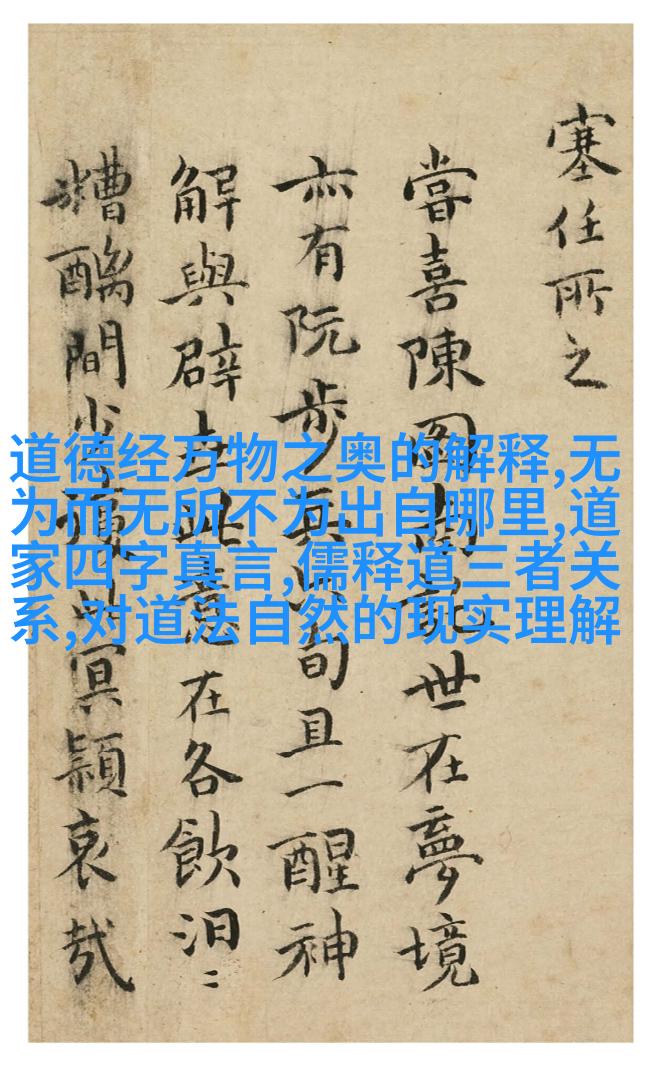 塞任所之
嘗喜陳圖南世在夢境
亦有阮步兵旬且一醒神
解與辟此意在各飲汨〻
糟醨間少冥穎哀哉
道德经万物之奥的解释,无
为而无所不为出自哪里,道
家四字真言,儒释道三者关
系,对道法自然的现实理解